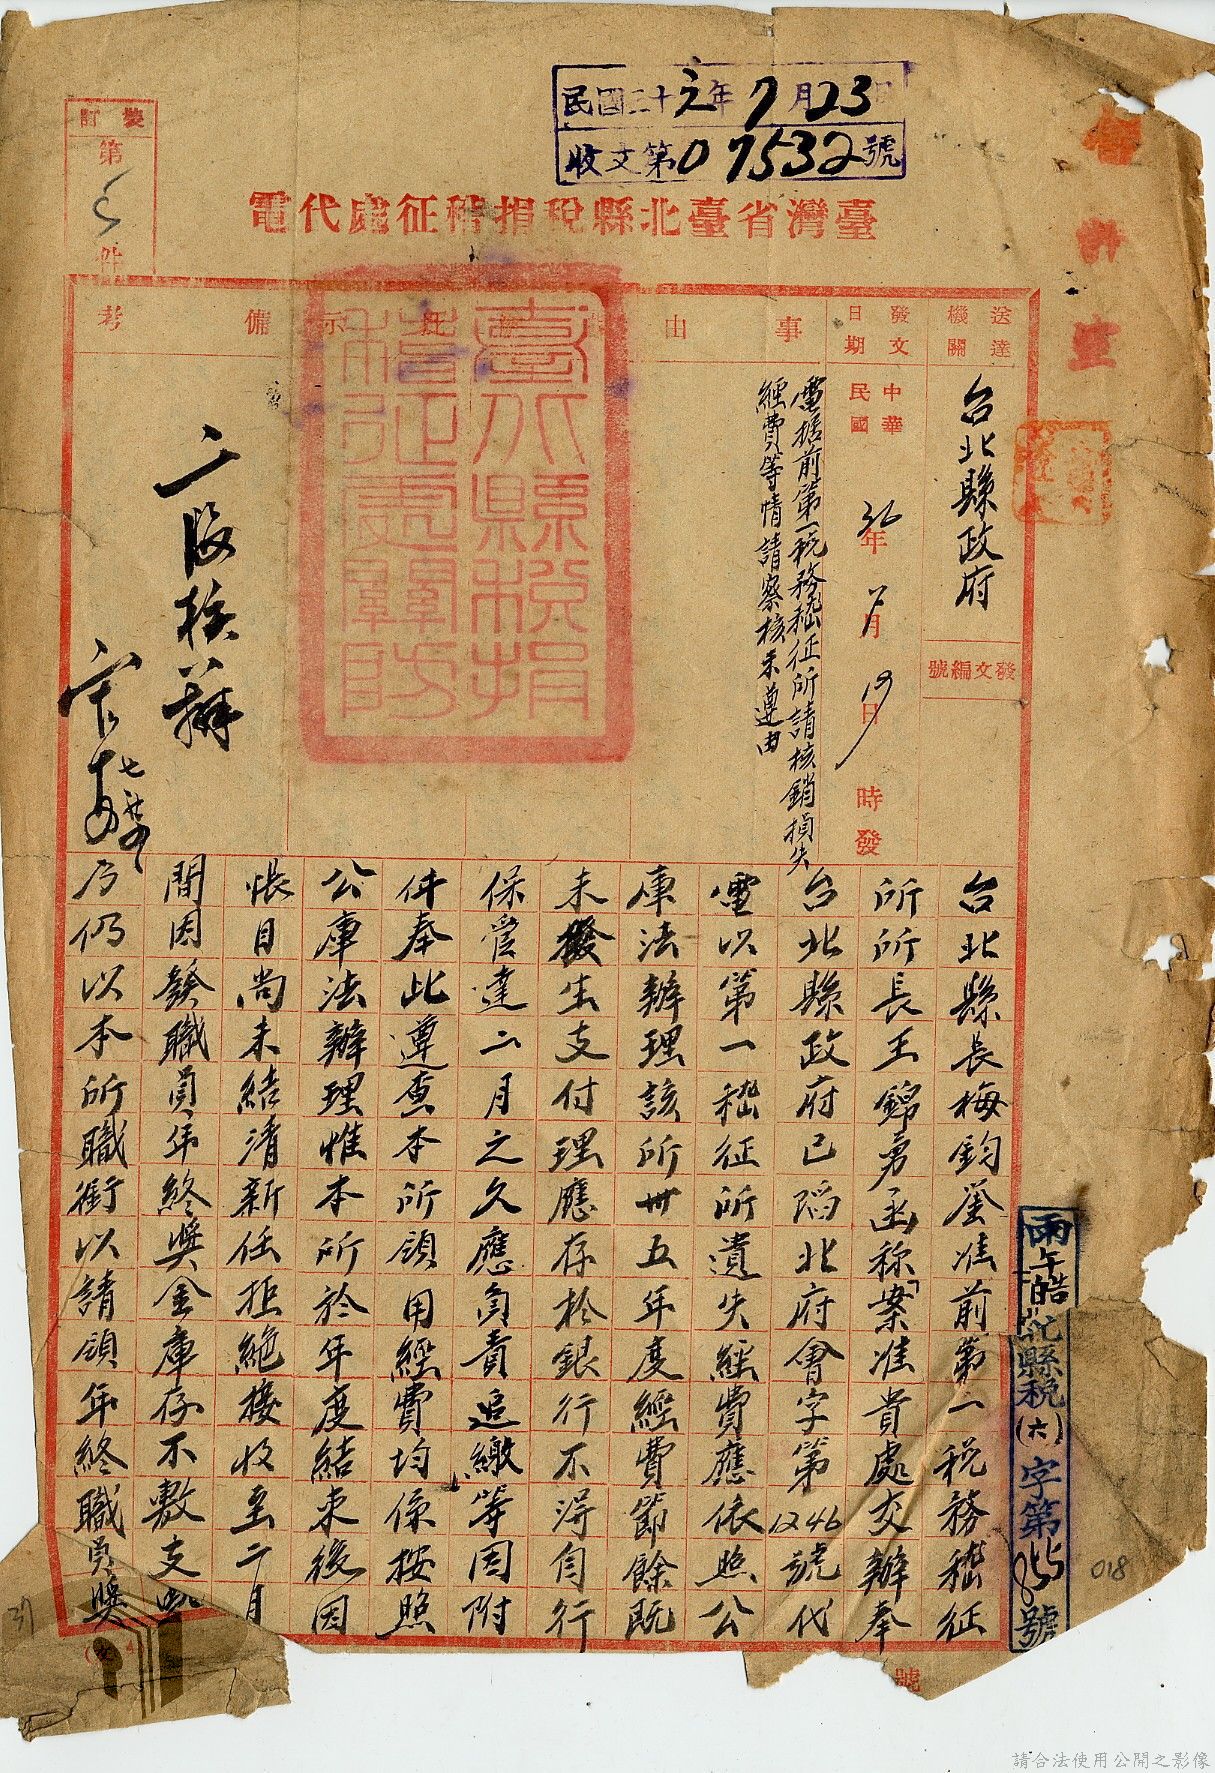 民國三十六年7月23日
收文第07532號
會計室
裝訂
第
件
臺灣省臺北縣稅捐稽征處代電
送達機關
台北縣政府
發文編號
發文日期
中華民國
36年7月19日
時發
事由
電據前第一稅務稽征所請核銷損失
經費等情請察核示遵由
批示
備考
臺北縣稅捐
稽征處關防
二股核辦
台北縣長梅鈞鑒准前第一稅務稽征
所所長王錦勇函称「案准貴處交辦奉
台北縣政府已陷北府會字第1246號代
電以第一稽征所遺失經費應依照公
庫法辦理該所卅五年度經費節餘既
未發生支付理應存於銀行不得自行
保管達二月之久應負責追繳」等因附
件奉此遵查本所領用經費均係按照
公庫法辦理惟本所於年度結束後因
帳目尚未結清新任拒絕接收至二月
間因發職員年終獎金庫存不敷支
乃仍以本所職銜以請領年終職員獎
丙午皓北縣稅(六)字第
號
號
018
請合法使用公開之影像